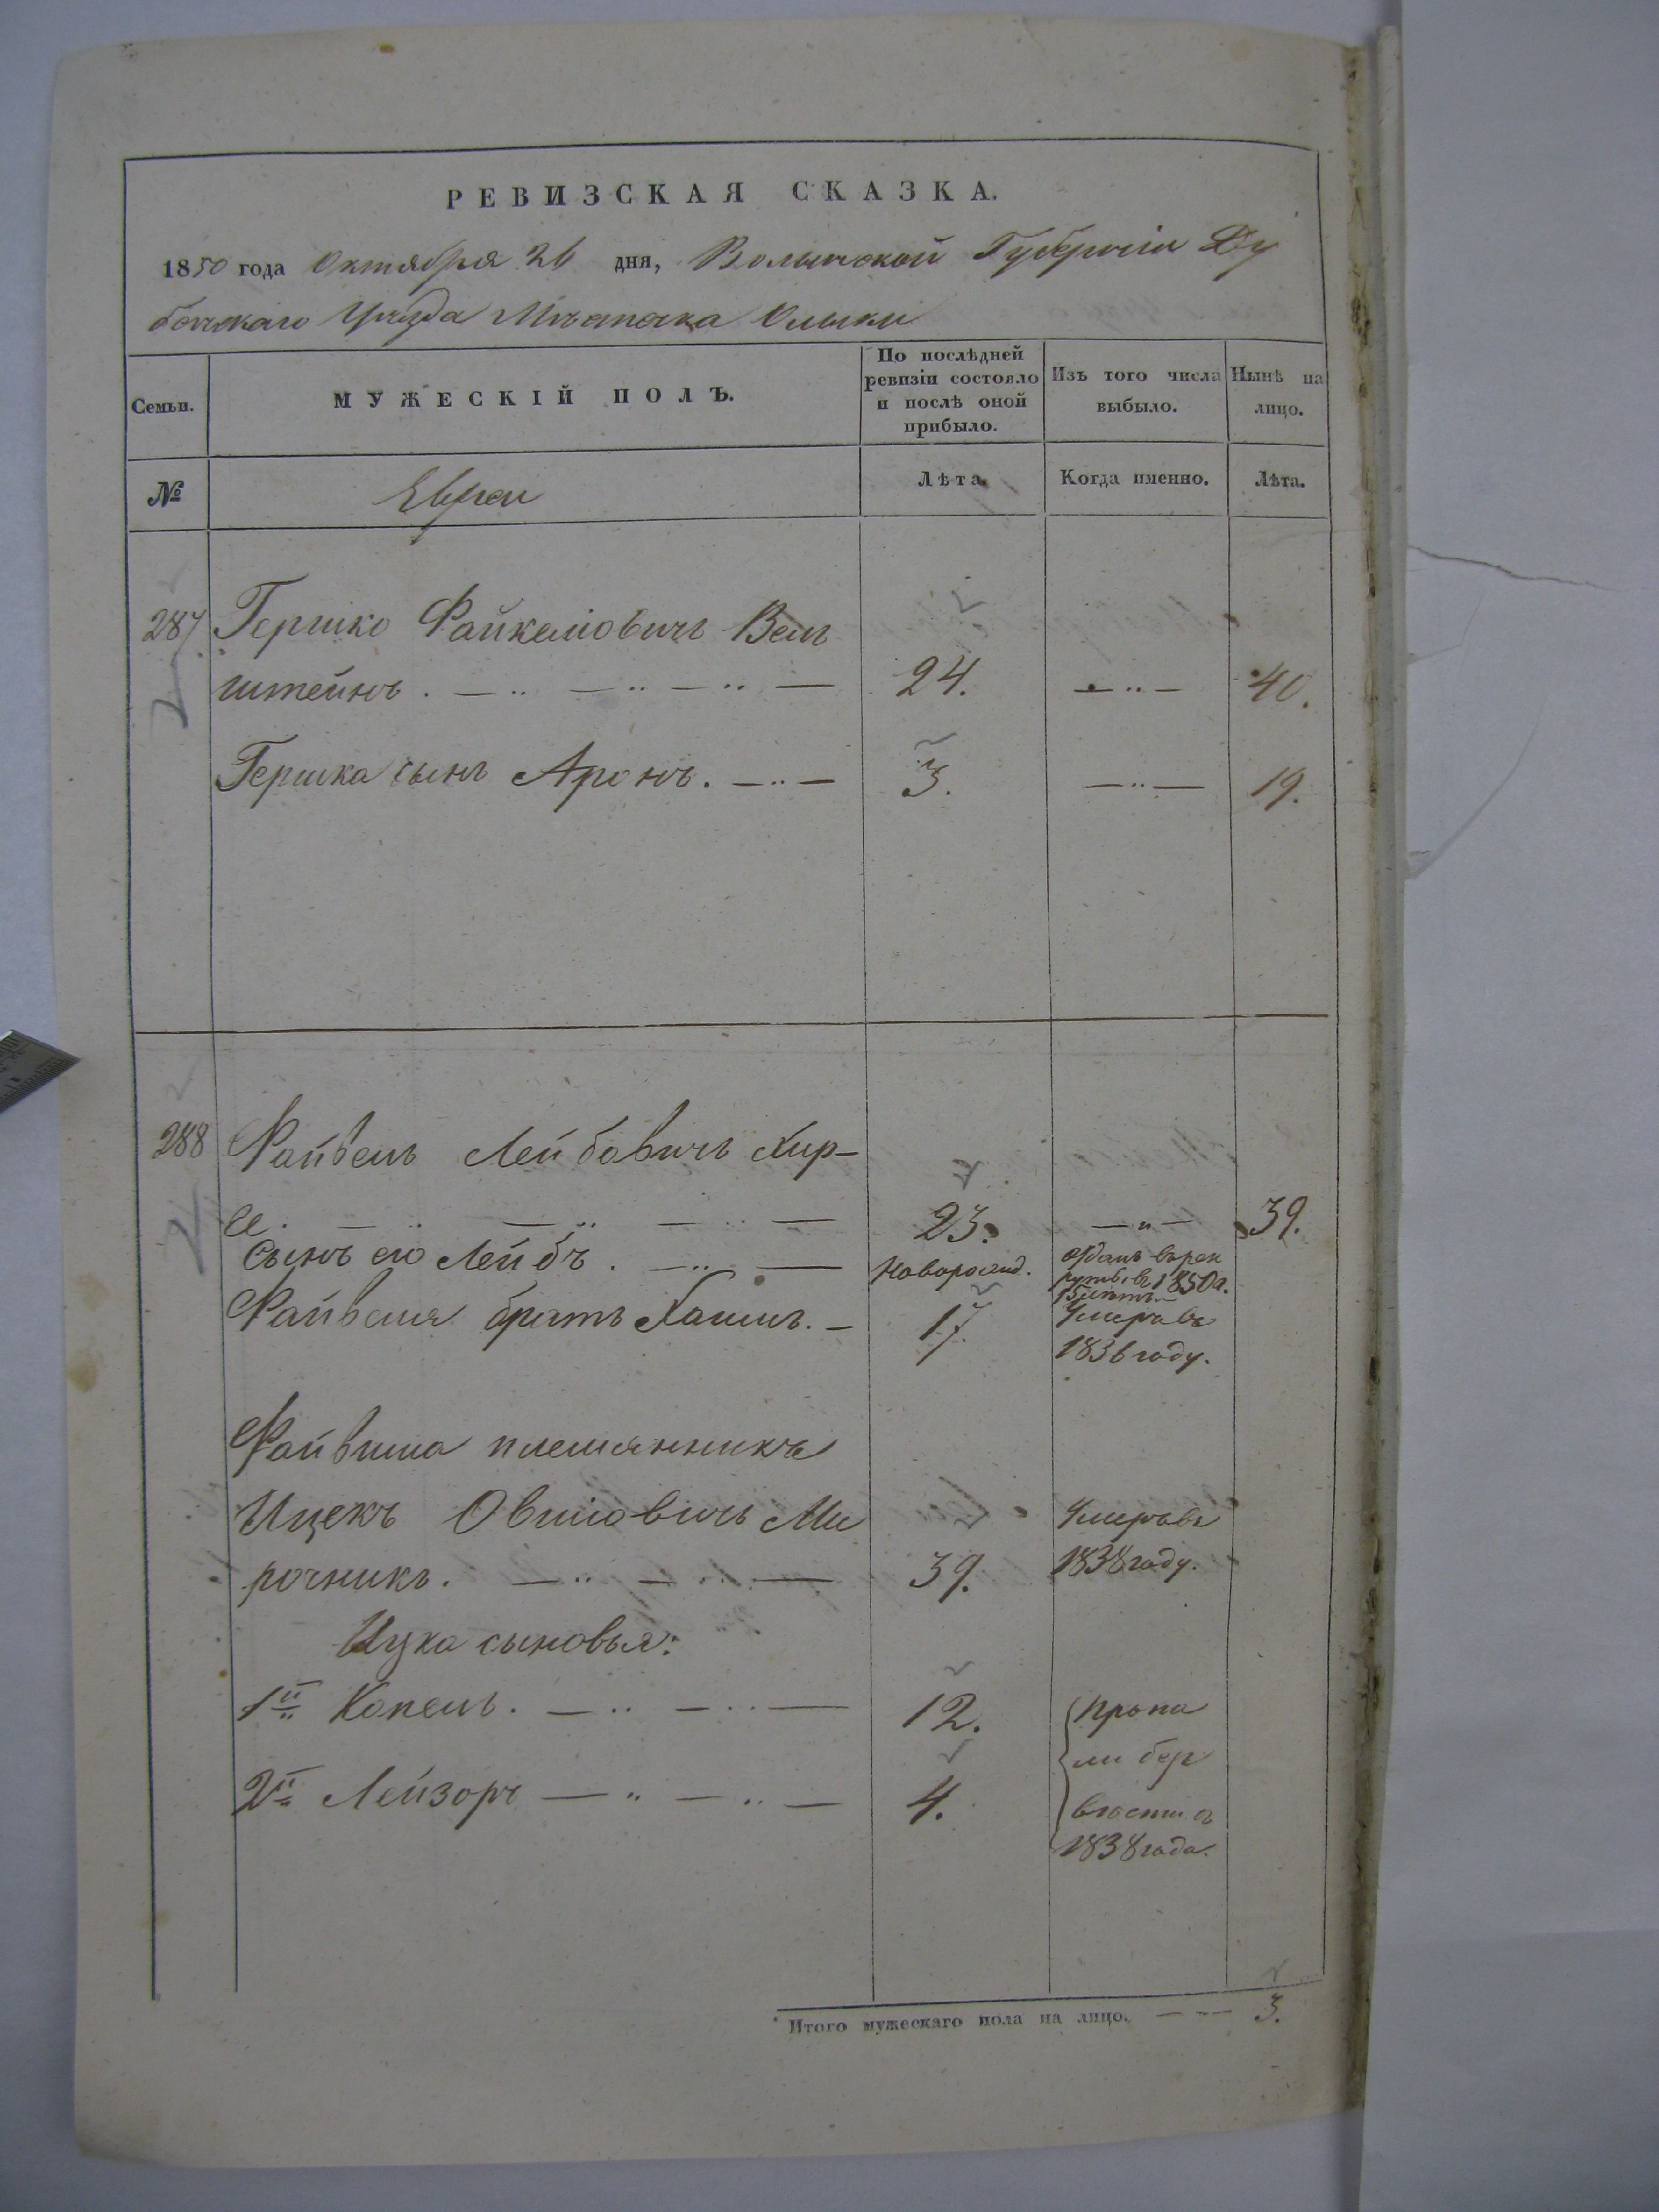 РЕВИЗСКАЯ СКАЗКА.
1850 года Октября 26 дня, Волынской Губерніи Ду
бенскаго Уѣзда Мѣстечка Олыки
Семьи.
МУЖЕСКІЙ ПОЛЪ.
По послѣдней ревизіи состояло и послѣ оной прибыло.
Изъ того числа выбыло.
Нынѣ на лицо.
№
Евреи
Лѣта.
Когда именно.
Лѣта.
287 Гершко Файкелiовичъ Вель
штейнъ. 24. 40.
Гершка сынъ Аронъ. 3. 19.
288 Файвель Лейбовичъ Хир-
23. 39.
Сынъ его Лейбъ. Новорожд. отданъ въ рек
руты въ 1850 г.
15 лѣтъ
Файвеля братъ Хаимъ. 17. Умеръ въ
1836 году.
Файвиша племянникъ
Ицекъ Овшіовичъ Ми Умеръ въ
рочникъ. 39. 1838 году.
Ицка сыновья:
1й Копель. 12. Пропа
ли безъ
2й Лейзоръ 4. вѣсти съ
1838 года.
Итого мужескаго пола на лицо. 3.